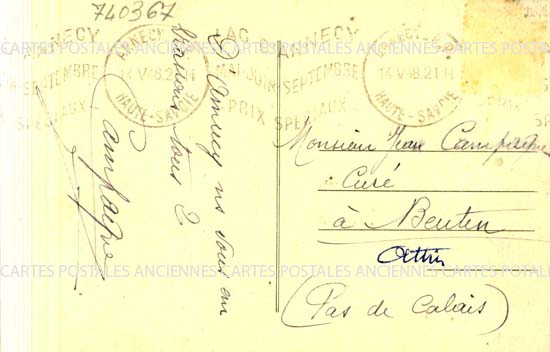 740367
ANNECY
SEPTEMBRE
SPECIAUX
ANNECY R.P.
14 V 48.21H
HAUTE-SAVOIE
LAC D'ANNECY
MAI-JUIN SEPTEMBRE
PRIX SPECIAUX
14 V 48.21H
HAUTE-SAVOIE
PRIX
CARTES POSTALES ANCIENNES CARTES POSTALES ANCIENNES CARTES POSTALES
D'Annecy ns vous
tous 2
Campagne
Monsieur Jean Campagne
Curé
à Beutin
Attin
(Pas de Calais)
CARTES POSTALES ANCIENNES CARTES POSTALES ANCIENNES CARTES POSTALES